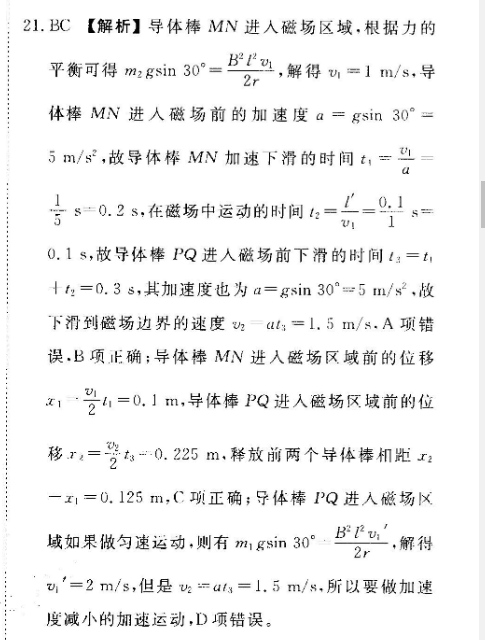 21. BC 【解析】导体棒 MN 进入磁场区域,根据力的
平衡可得 m₂gsin 30°=B²l²v₁/2r,解得 v₁=1 m/s,导
体棒 MN 进入磁场前的加速度 a = gsin 30° =
5 m/s²,故导体棒 MN 加速下滑的时间 t₁ = v₁/a =
1/5 s=0.2 s,在磁场中运动的时间 t₂=l′/v₁=0.1/1 s=
0.1 s,故导体棒 PQ 进入磁场前下滑的时间 t₃=t₁
+t₂=0.3 s,其加速度也为 a=gsin 30°=5 m/s²,故
下滑到磁场边界的速度 v₂=at₃=1.5 m/s,A 项错
误,B 项正确;导体棒 MN 进入磁场区域前的位移
x₁=v₁/2 t₁=0.1 m,导体棒 PQ 进入磁场区域前的位
移 x₂=v₂/2 t₃=0.225 m,释放前两个导体棒相距 x₂
-x₁=0.125 m,C 项正确;导体棒 PQ 进入磁场区
域如果做匀速运动,则有 m₁gsin 30°=B²l²v₁′/2r,解得
v₁′=2 m/s,但是 v₂=at₃=1.5 m/s,所以要做加速
度减小的加速运动,D 项错误。